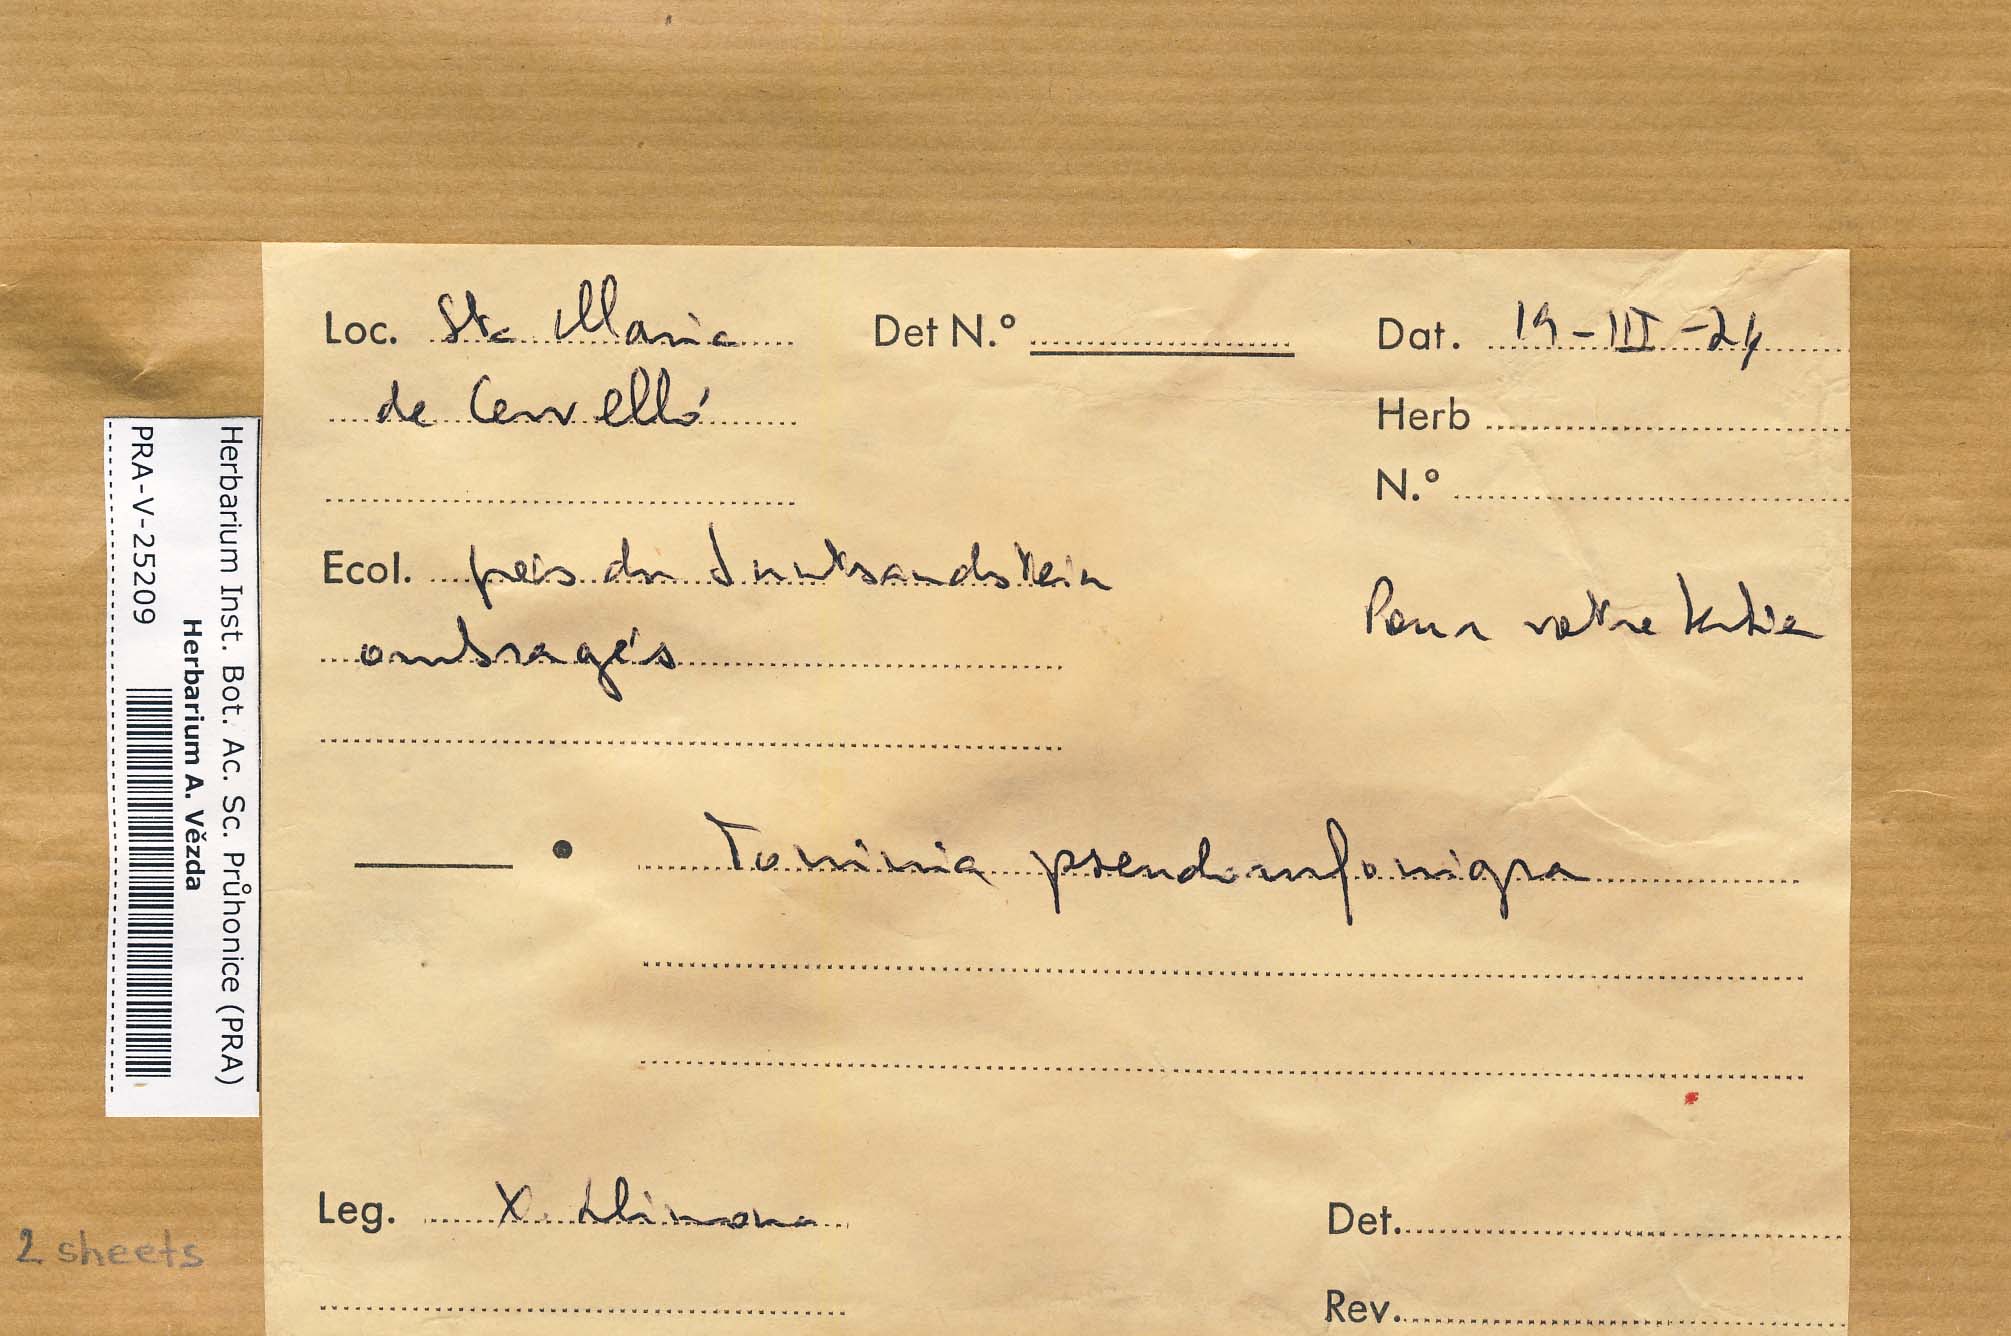 Loc. Sta Maria
de Cervelló
Det N.º
Dat. 19-III-74
Herb
N.º
Ecol. grès du Buntsandstein
ombragés
Pour votre
Toninia pseudorufonigra
Leg. X. Llimona
Det.
Rev.
2 sheets
Herbarium Inst. Bot. Ac. Sc. Průhonice (PRA)
Herbarium A. Vězda
PRA-V-25209